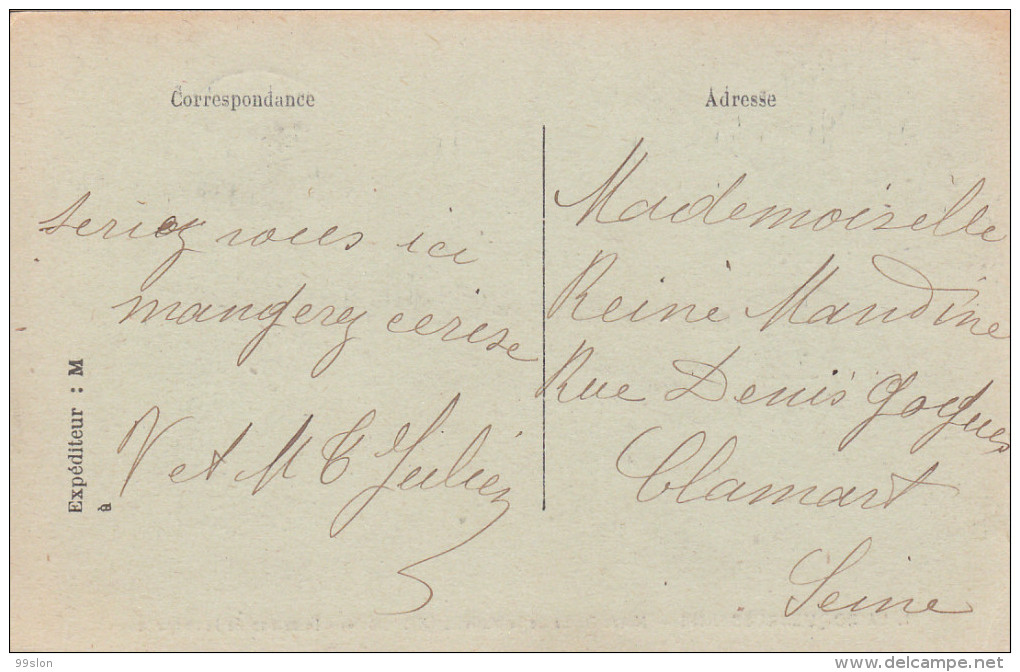 Correspondance
seriez vous ici
mangerez cerise
V et M T Julien
Expéditeur : M
à
Adresse
Mademoiselle
Reine Maudine
Rue Denis Gogues
Clamart
Seine
99slon
delcampe.net